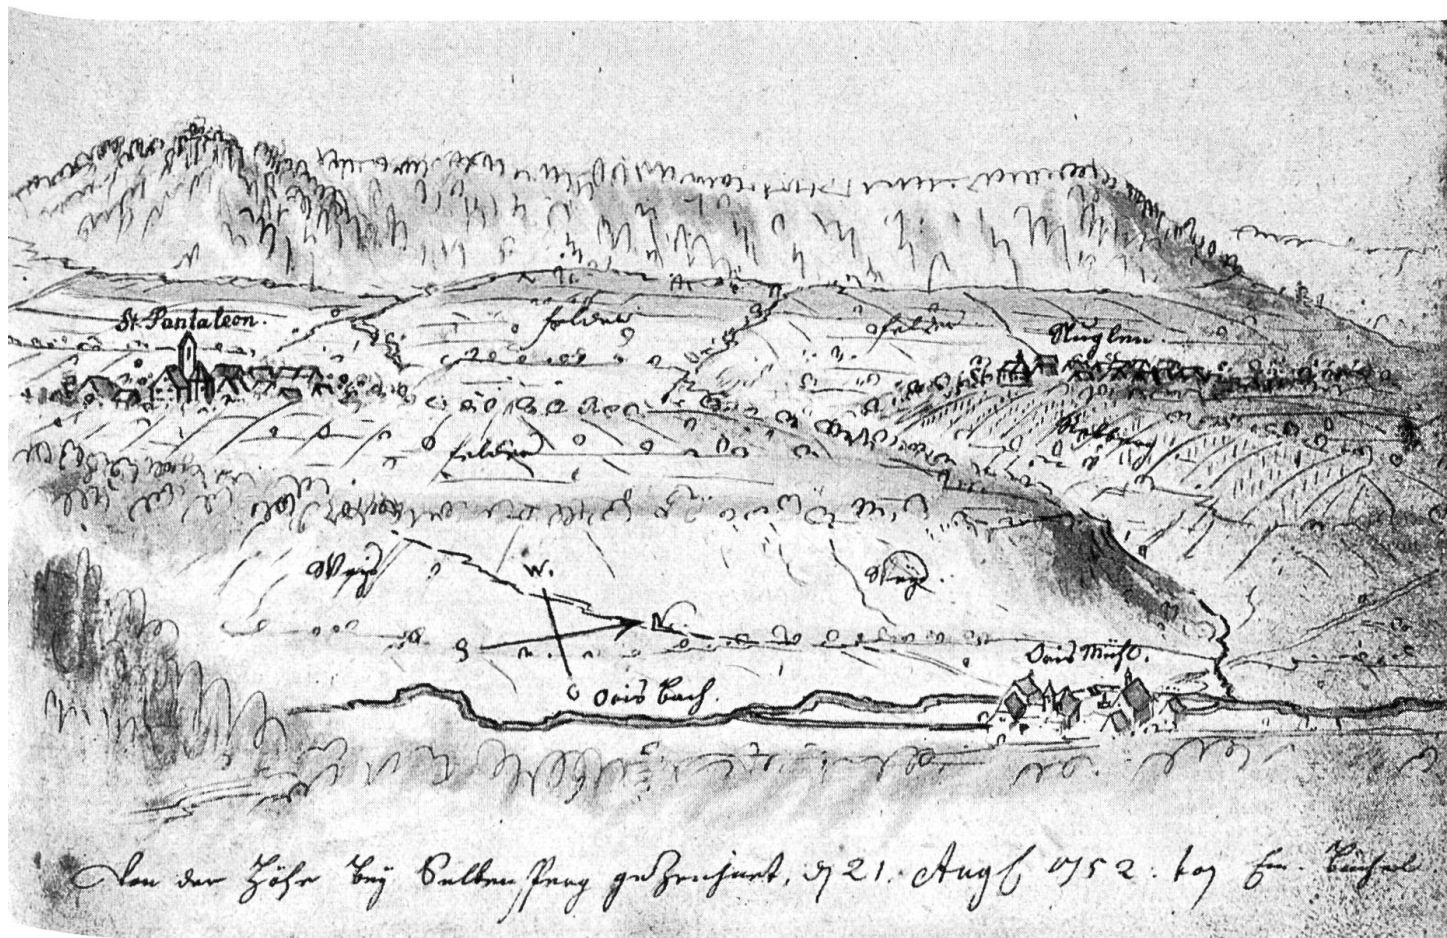 St. Pantaleon.
felder
felder
Nuglen.
felder
Weyd
W.
Weyd.
N.
S
Oris Mühl.
O Oris bach.
Von der Höhe beÿ Seltensperg gezeichnet, d 21. Augst 1752. von Em. Büchel